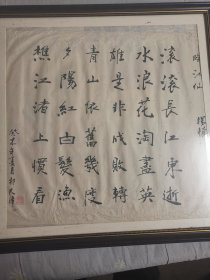 临江仙
滚滚長江東逝
水浪花淘盡英
雄是非成敗轉
青山依舊幾度
夕陽紅白髮漁
樵江渚上慣看